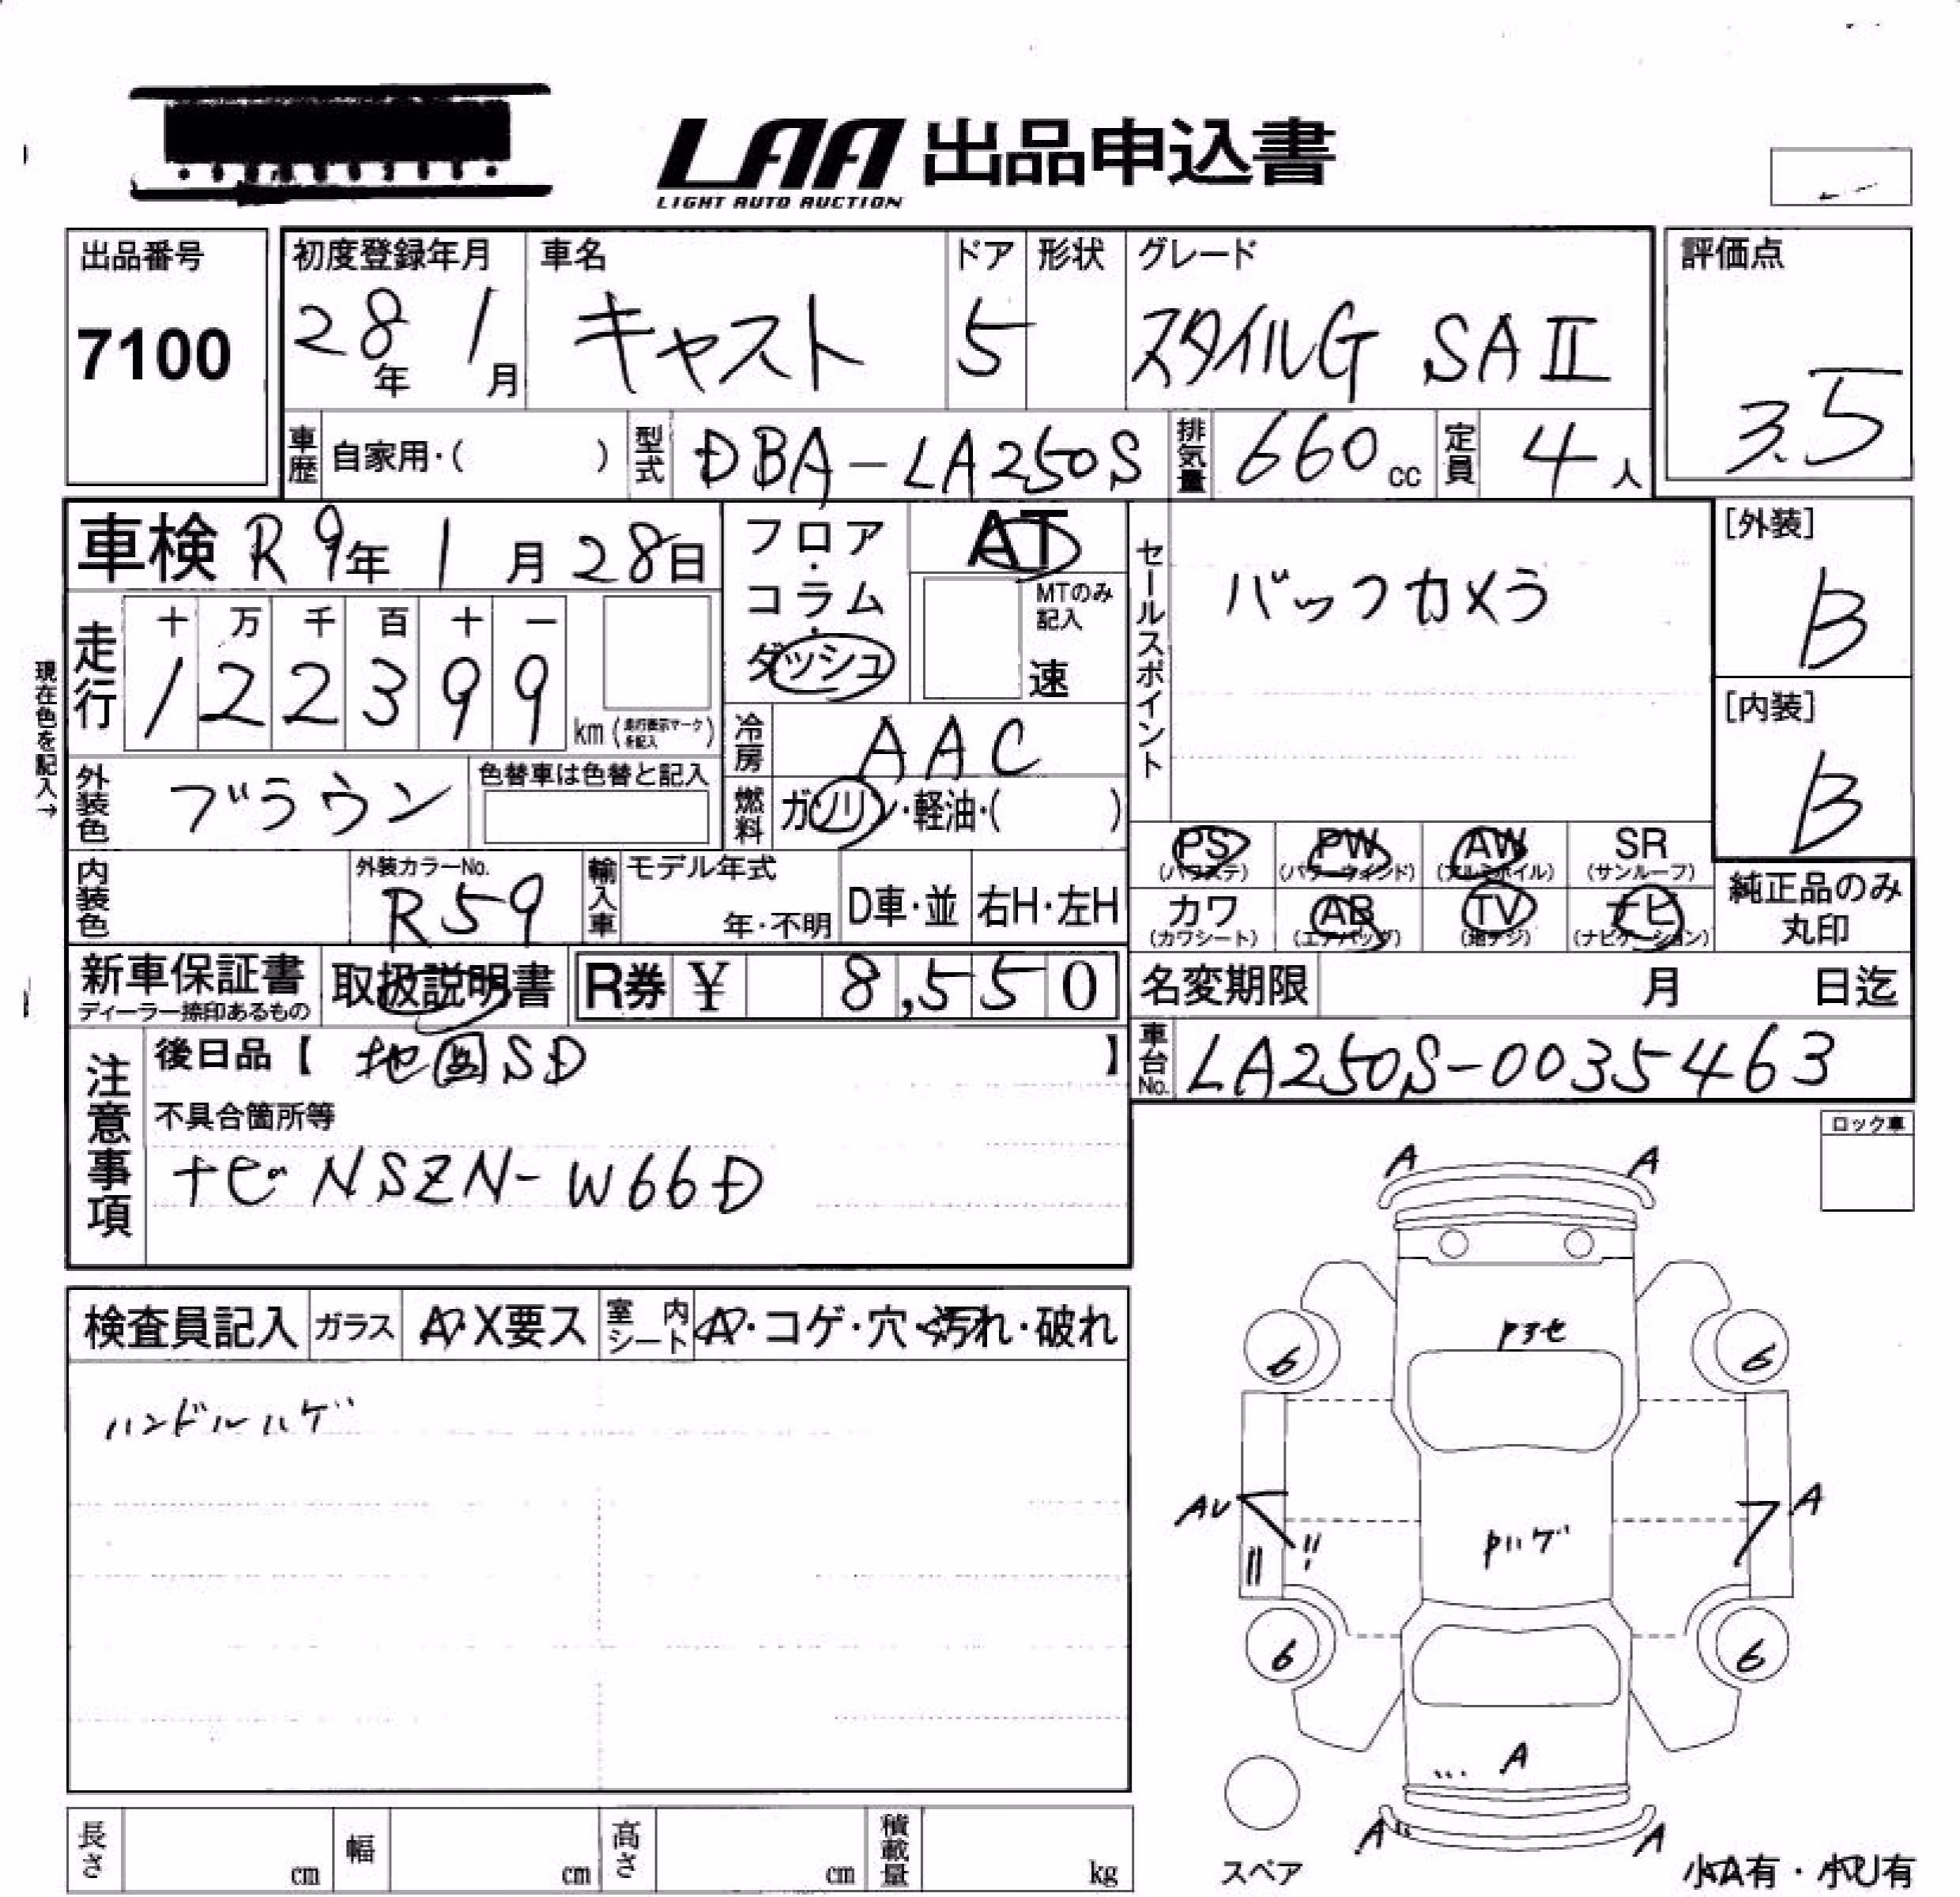 LAA 出品申込書
LIGHT AUTO AUCTION
出品番号
7100
初度登録年月
28年 1月
車名
キャスト
ドア
5
形状
グレード
スタイルG SAⅡ
評価点
3.5
車歴 自家用・( )
型式 DBA-LA250S
排気量 660cc
定員 4人
車検 R9年 1月 28日
フロア・コラム・ダッシュ
AT
MTのみ記入
速
セールスポイント
バックカメラ
[外装]
B
[内装]
B
現在色を記入→
走行
十 万 千 百 十 一
1 2 2 3 9 9
km (走行表示マークを記入)
冷房 AAC
外装色 ブラウン
色替車は色替と記入
燃料 ガソリン・軽油・( )
PS (パワステ)
PW (パワーウインド)
AW (アルミホイル)
SR (サンルーフ)
内装色
外装カラーNo.
R59
輸入車
モデル年式
年・不明
D車・並
右H・左H
カワ (カワシート)
AB (エアバッグ)
TV (地デジ)
ナビ (ナビゲーション)
純正品のみ丸印
新車保証書
ディーラー捺印あるもの
取扱説明書
R券 ¥ 8,550
名変期限 月 日迄
注意事項
後日品【 地図SD 】
車台No. LA250S-0035463
不具合箇所等
ナビ NSZN-W66D
ロック車
検査員記入
ガラス A・X要ス
室内シート A・コゲ・穴・汚れ・破れ
ハンドルハゲ
A A
Pアセ
6 6
AU A
Pハゲ
6 6
A
A A
スペア
小A有・小U有
長さ cm
幅 cm
高さ cm
積載量 kg